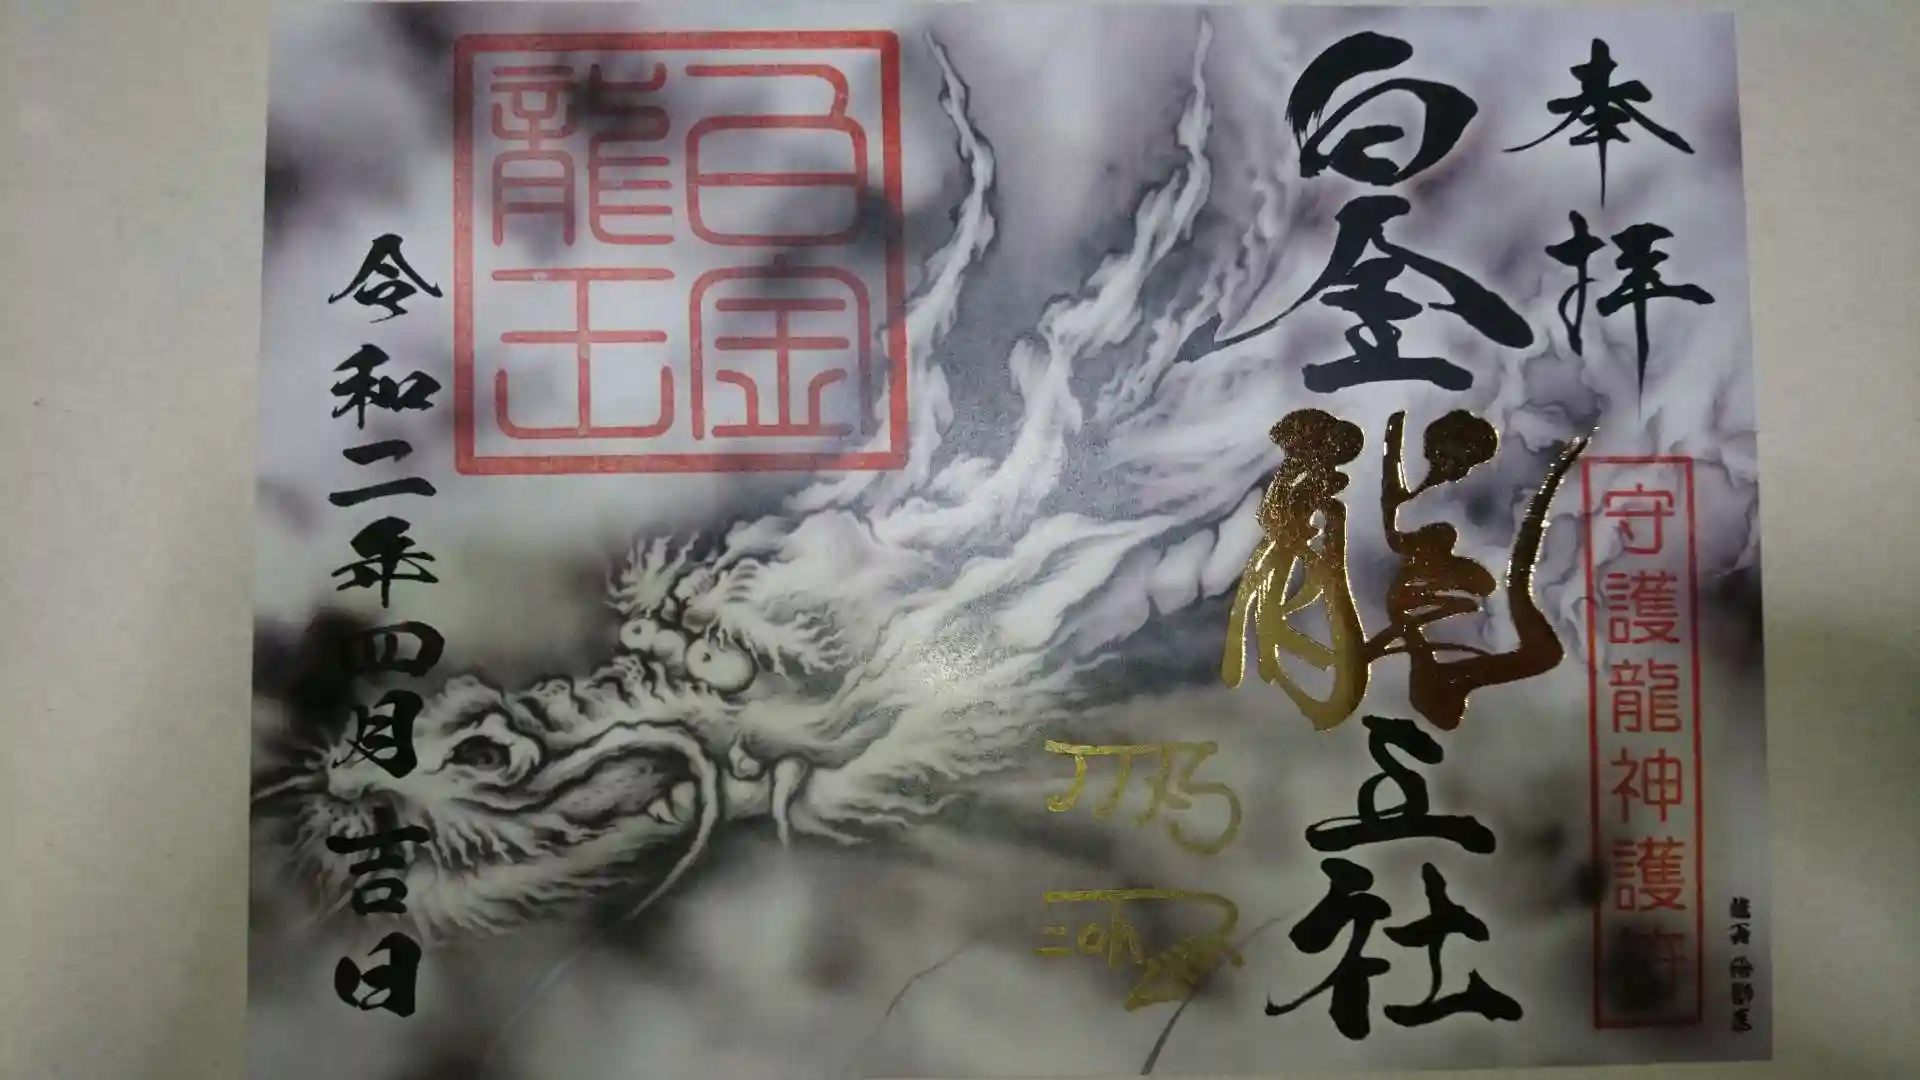 奉拝
白金龍王社
守護龍神護符
白金
龍王
令和二年四月吉日